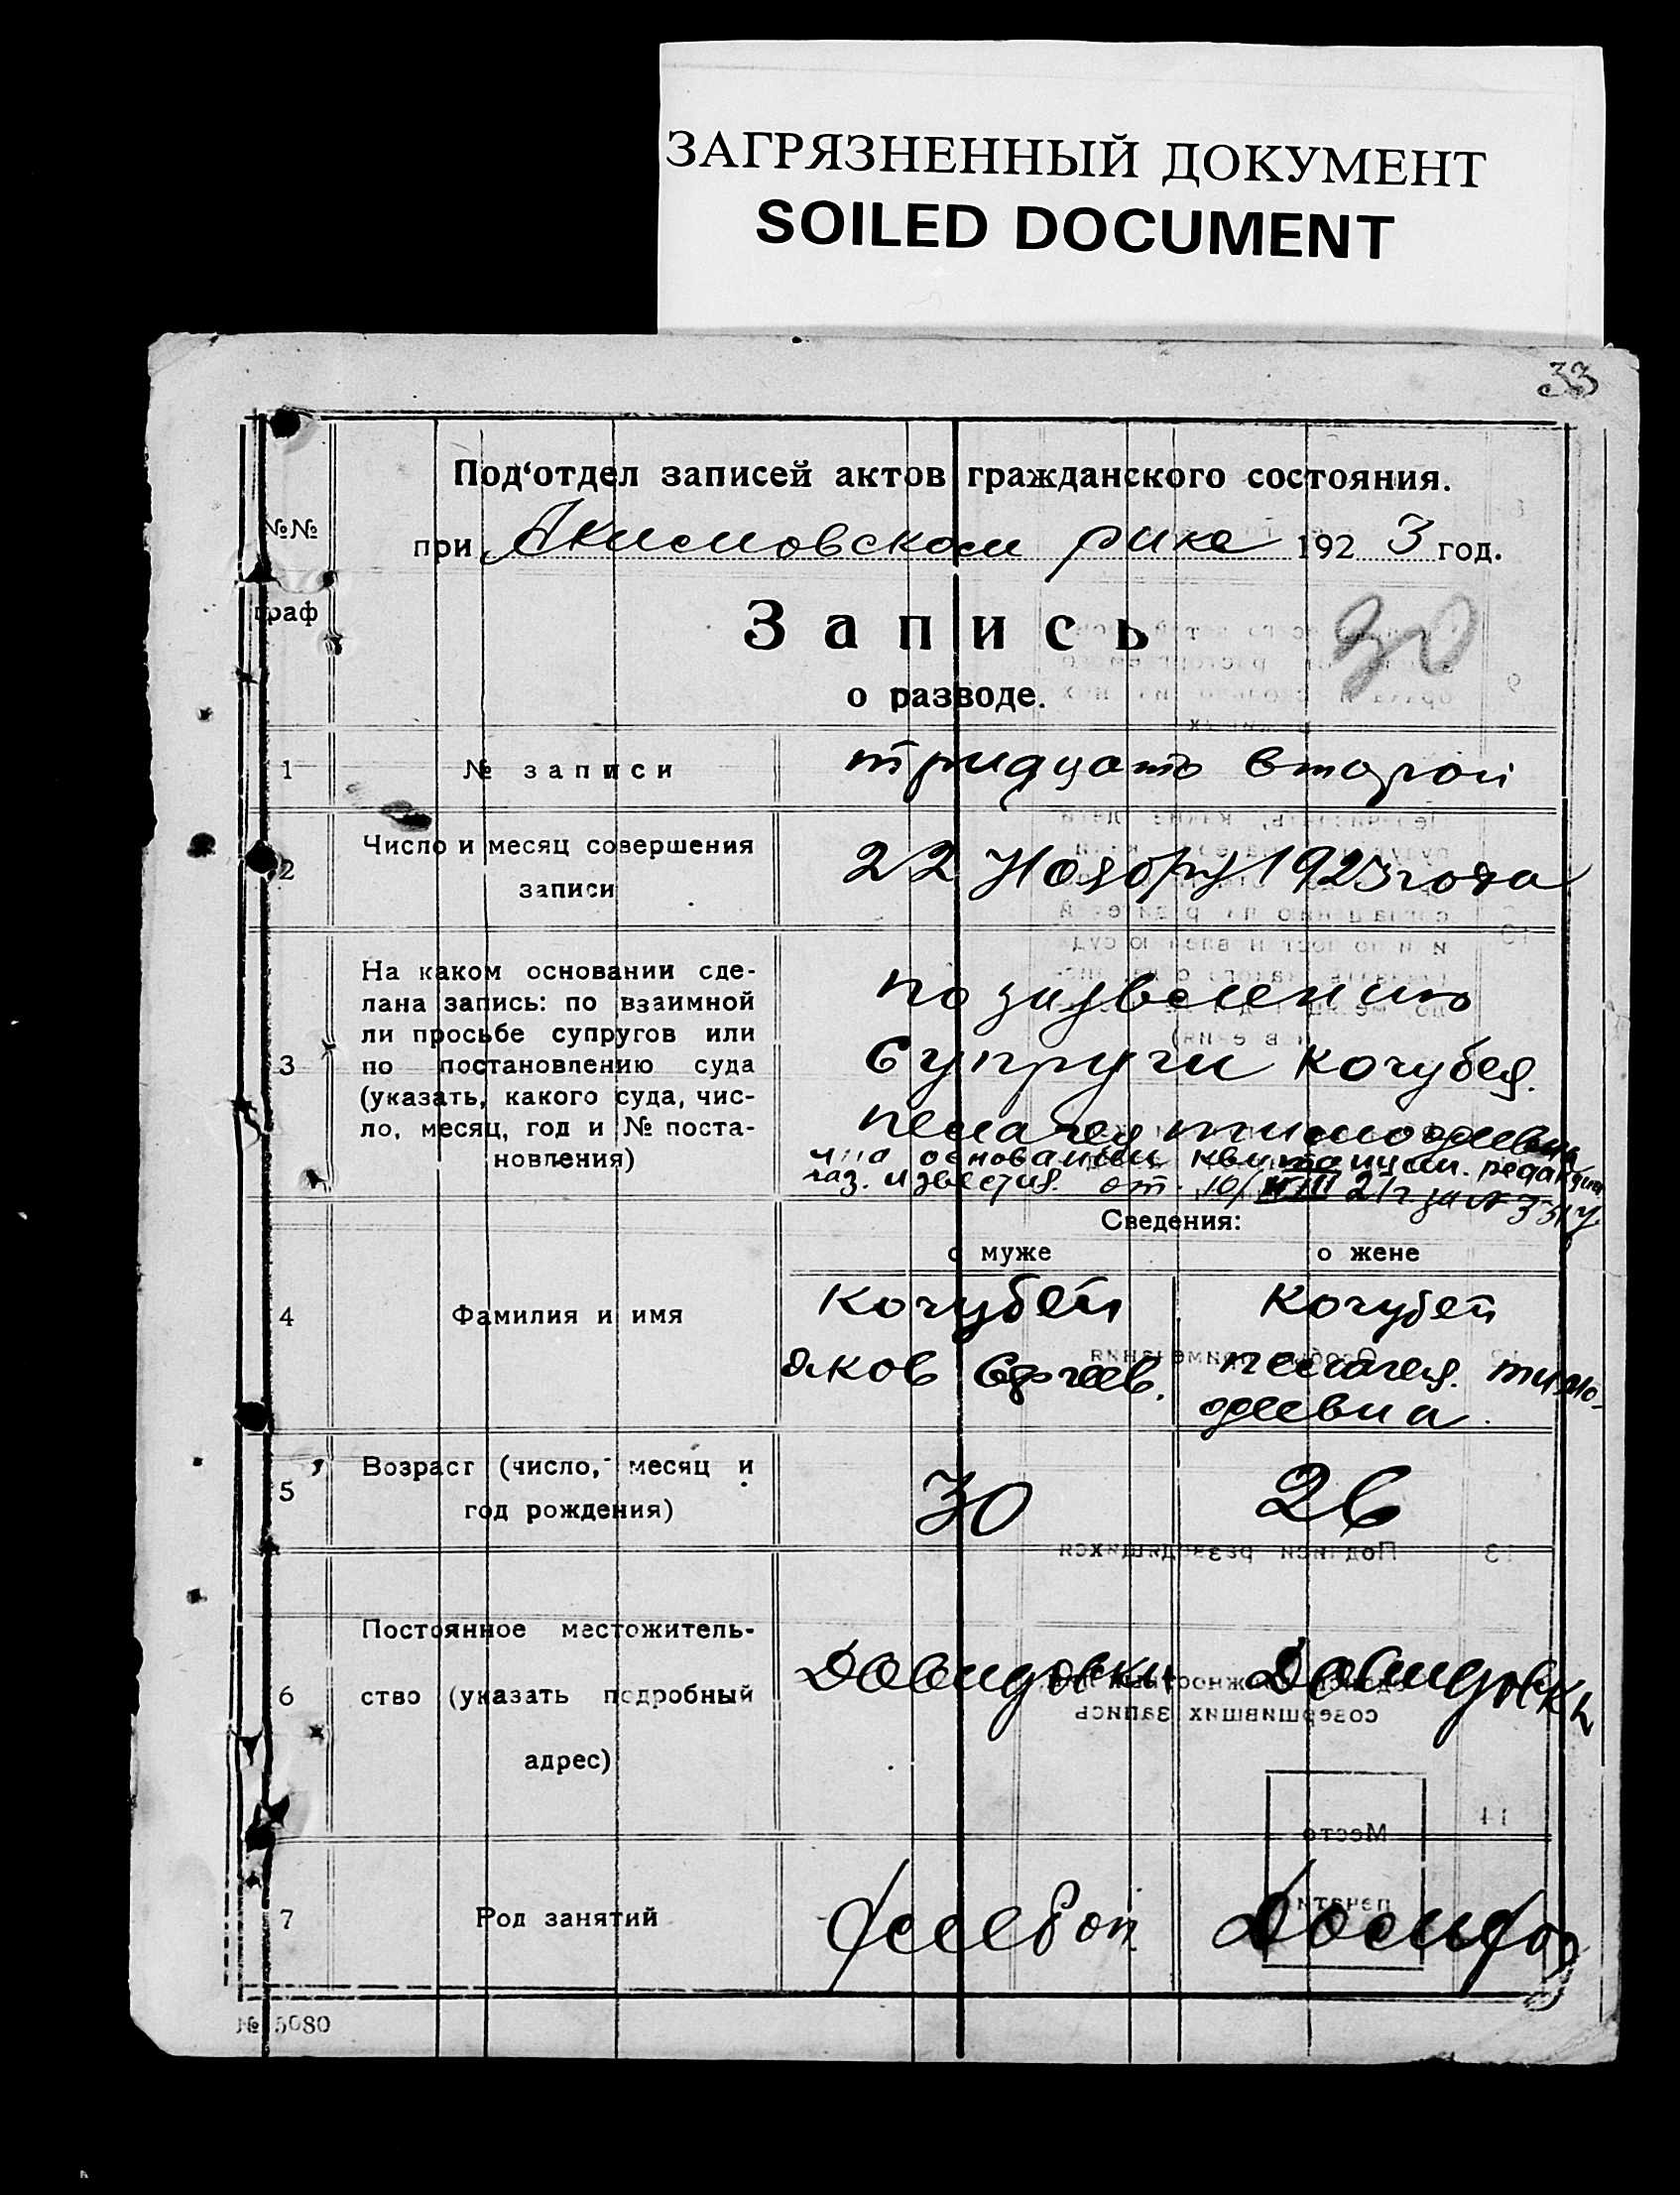 ЗАГРЯЗНЕННЫЙ ДОКУМЕНТ
SOILED DOCUMENT
33
Под'отдел записей актов гражданского состояния.
№№ граф
при Акимовском рике 1923 год.
Запись
30
о разводе.
1 № записи тридцать второй
2 Число и месяц совершения
записи
22 Ноября 1923 года
3 На каком основании сде-
лана запись: по взаимной
ли просьбе супругов или
по постановлению суда
(указать, какого суда, чис-
ло, месяц, год и № поста-
новления)
по заявлению
Супруги Кочубея
Пелагея Тимофеевна
и на основании квитанции редакции
газ. Известия от 10/VIII
Сведения:
о муже о жене
4 Фамилия и имя
Кочубей Кочубей
Яков Сергеев. Пелагея Тимо-
феевна.
5 Возраст (число, месяц и
год рождения)
30 26
6 Постоянное местожитель-
ство (указать подробный
адрес)
Довидовки Довидовки
7 Род занятий
хлебоп Домохоз
№ 5080